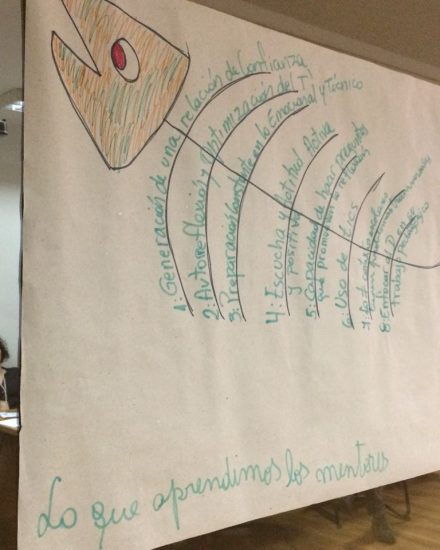 1: Generación de una relación de Confianza
2: Autoreflexión y Optimización del T'
3: Preparación Constante en lo Emocional y Técnico
4: Escucha y Actitud Activa
y positiva
5: Capacidad de hacer preguntas
que promuevan la reflexión
6: Uso de
7:
8: Enfocar el
trabajo Pedagógico
Lo que aprendimos los mentores